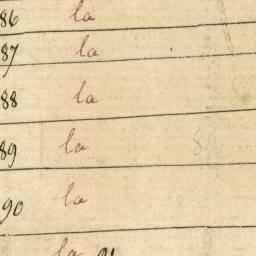 86 la
87 la
88 la
89 la
90 la
la